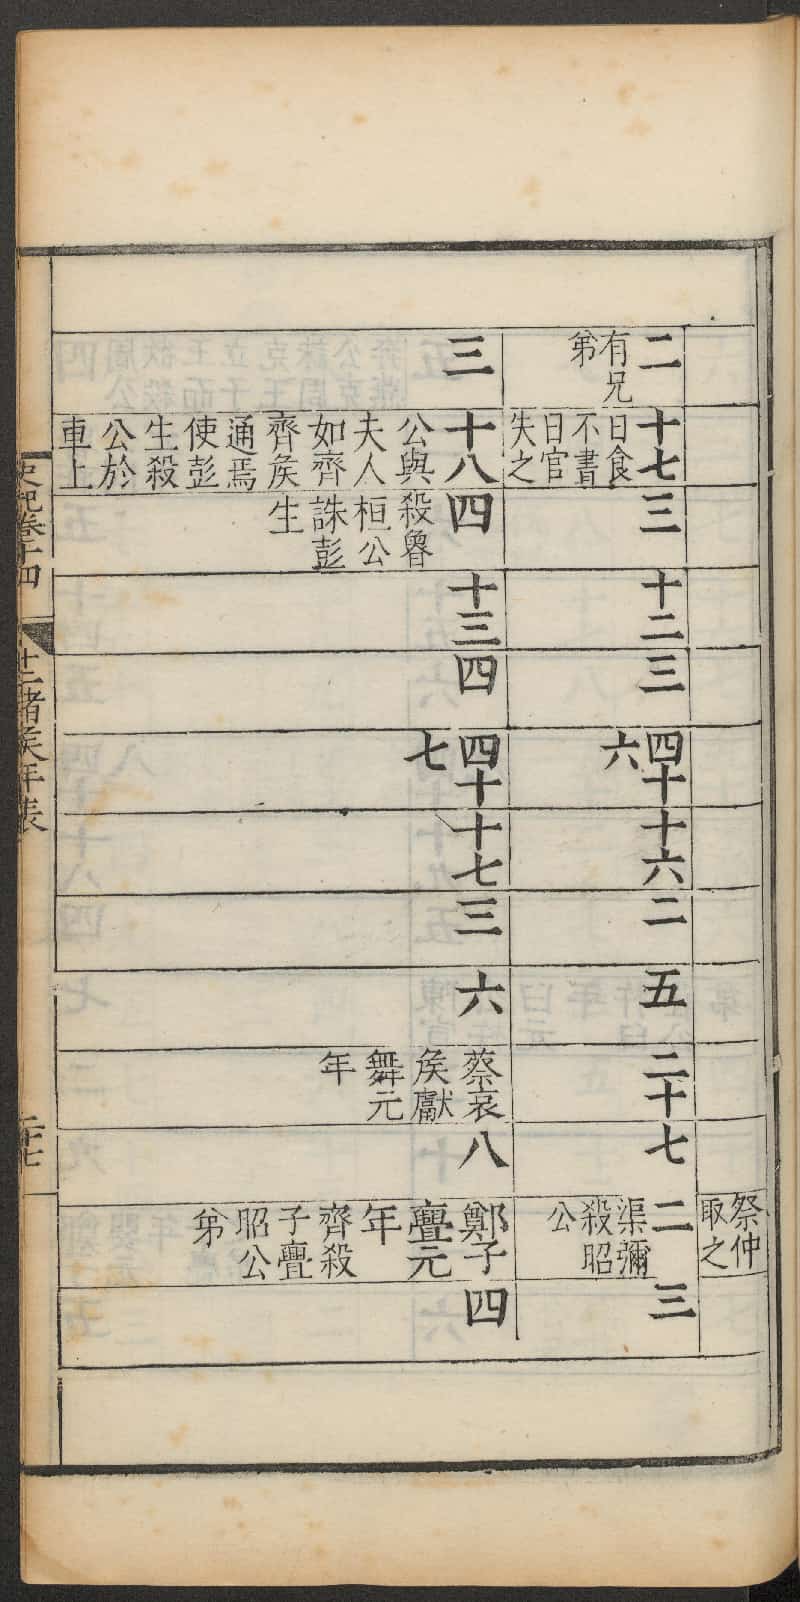 祭仲
取之
二
有兄
弟
十七
日食
不書
日官
失之
三
十二
三
四十
六
十六
二
五
二十
七
二
渠彌
殺昭
公
三
三
十八
公與
夫人
如齊
齊矦
通焉
使彭
生殺
公於
車上
四
殺魯
桓公
誅彭
生
十三
四
四十
七
十七
三
六
蔡哀
矦獻
舞元
年
八
鄭子
亹元
年
齊殺
子亹
昭公
弟
四
史記卷十四
十二諸矦年表
二十七